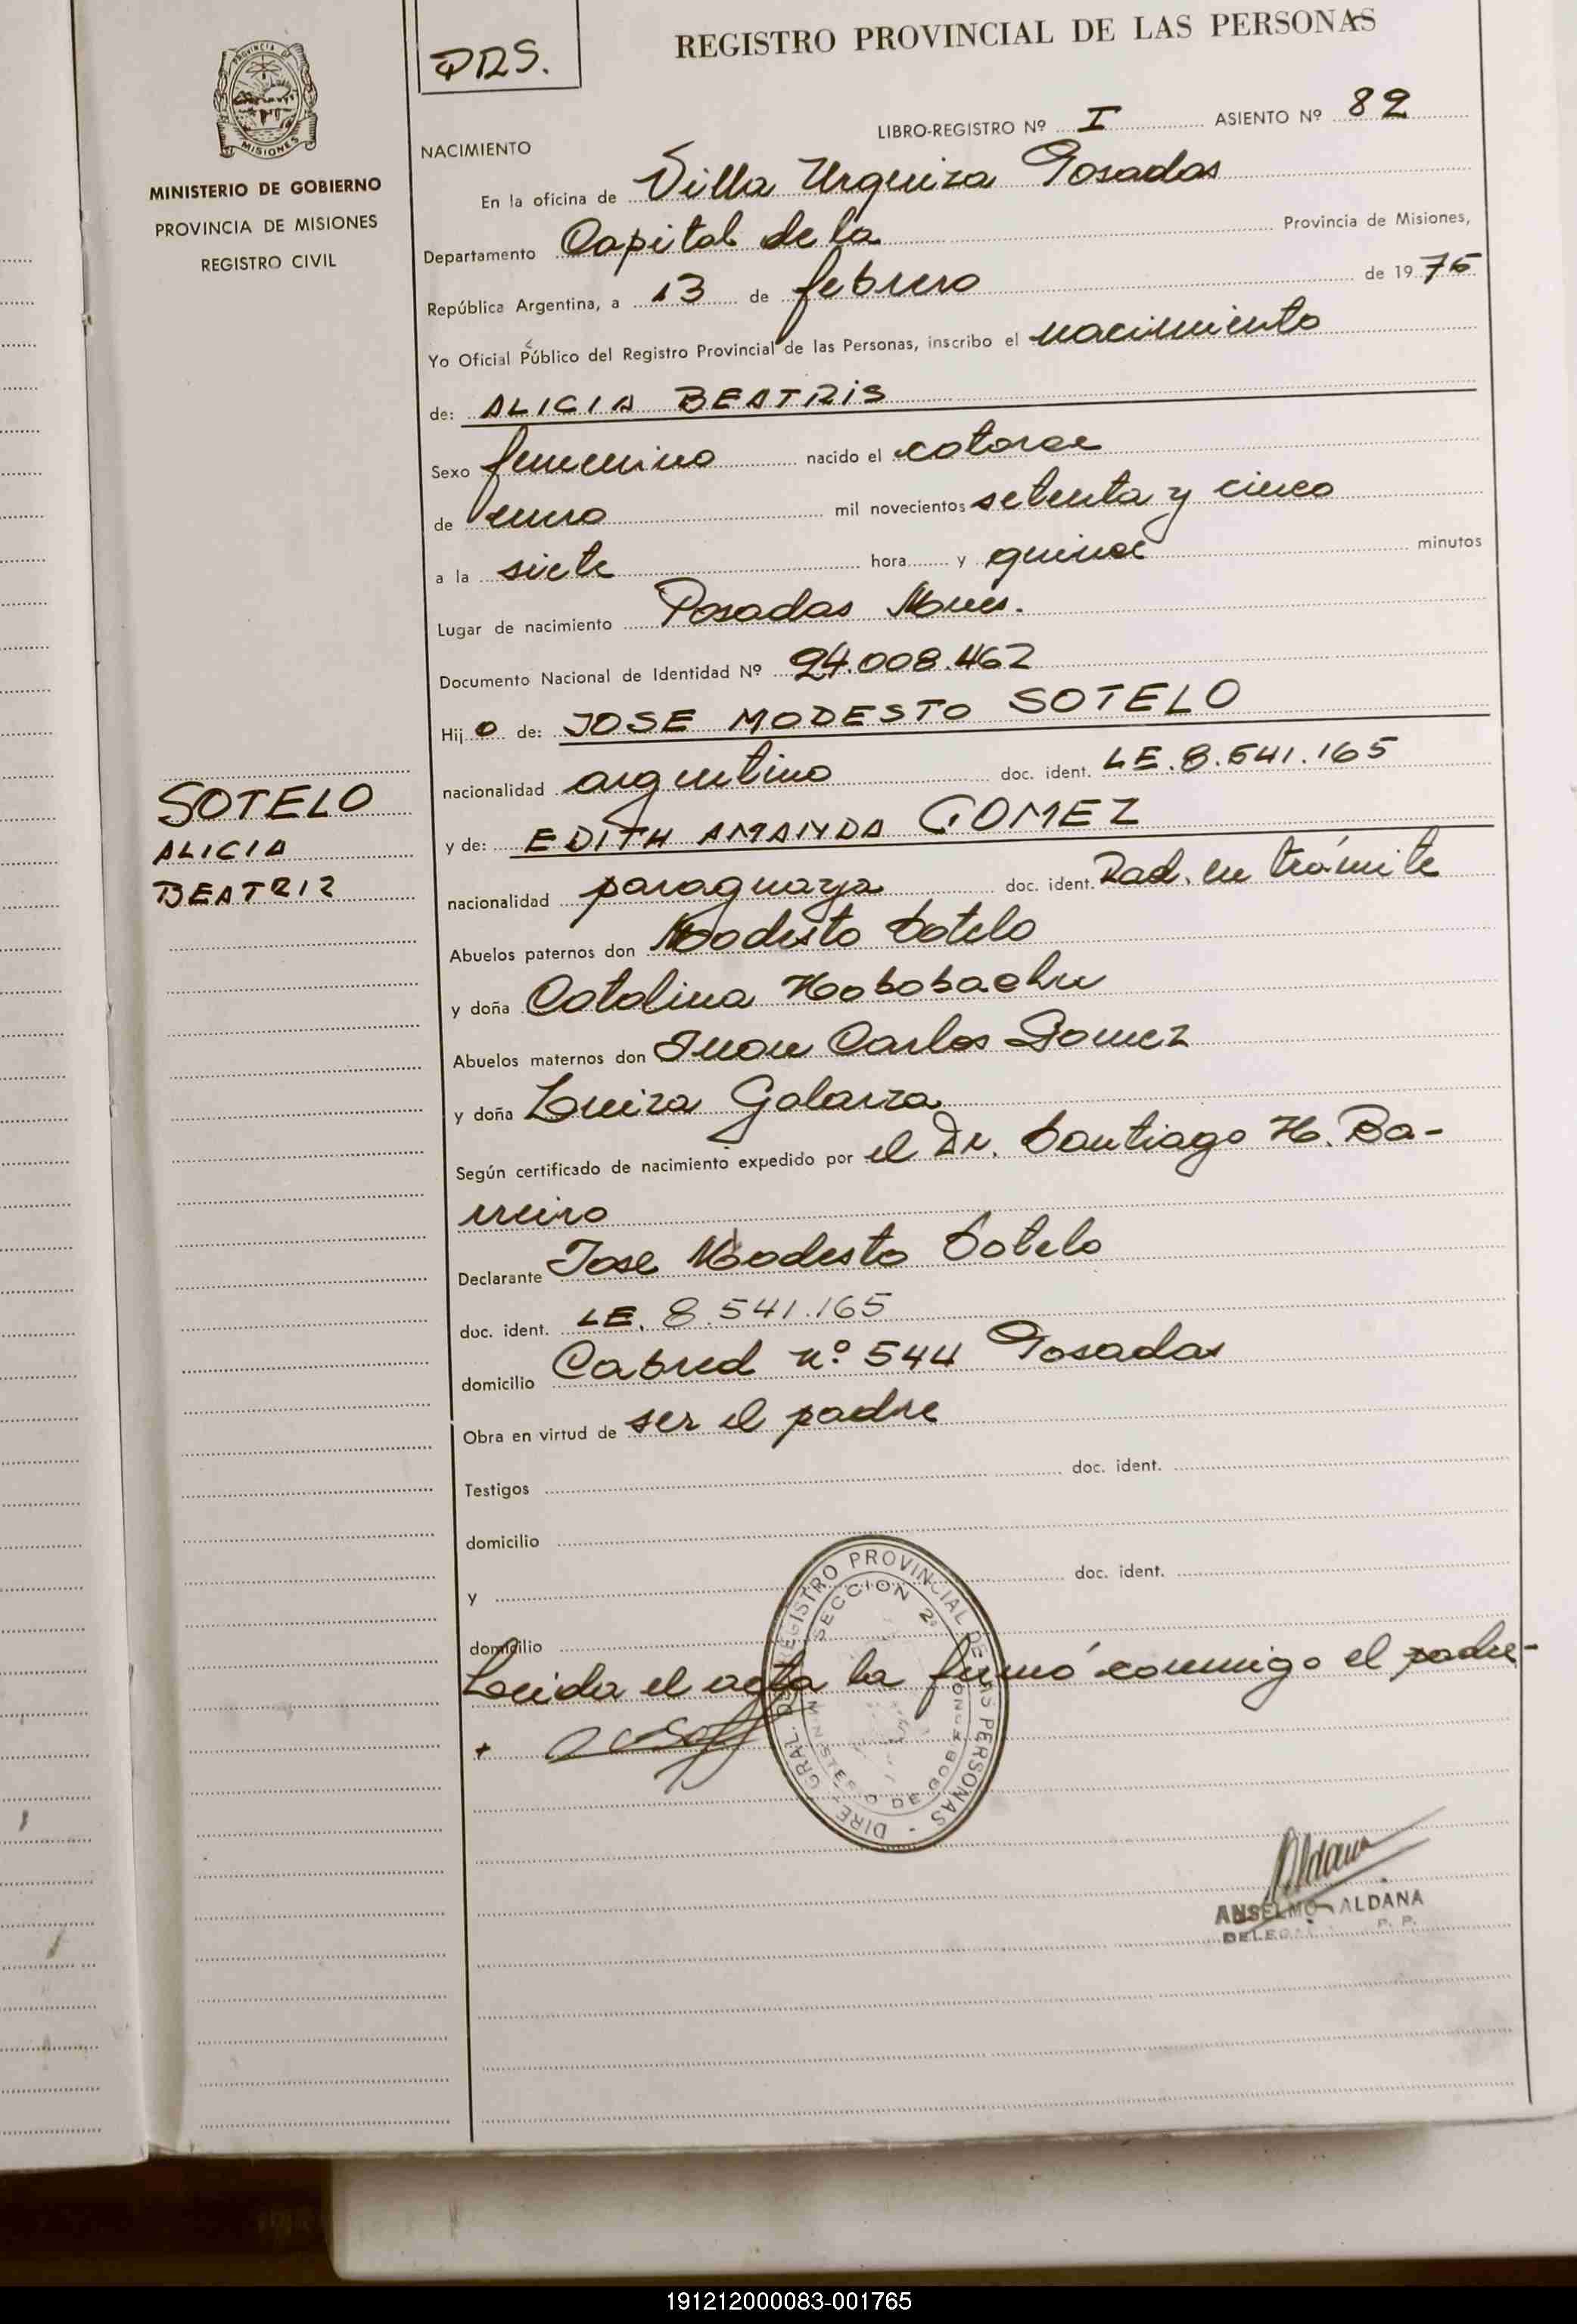 PROVINCIA DE
MISIONES
MINISTERIO DE GOBIERNO
PROVINCIA DE MISIONES
REGISTRO CIVIL
PRS.
REGISTRO PROVINCIAL DE LAS PERSONAS
LIBRO-REGISTRO Nº I ASIENTO Nº 82
NACIMIENTO
En la oficina de Villa Urquiza Posadas
Departamento Capital de la Provincia de Misiones,
República Argentina, a 13 de febrero de 1975
Yo Oficial Público del Registro Provincial de las Personas, inscribo el nacimiento
de: ALICIA BEATRIS
Sexo femenino nacido el catorce
de enero mil novecientos setenta y cinco
a la siete hora y quince minutos
Lugar de nacimiento Posadas Mnes.
Documento Nacional de Identidad Nº 24.008.462
Hijo de: JOSE MODESTO SOTELO
nacionalidad argentino doc. ident. LE.8.541.165
y de: EDITH AMANDA GOMEZ
nacionalidad paraguaya doc. ident. Rad. en trámite
SOTELO
ALICIA
BEATRIZ
Abuelos paternos don Modesto Sotelo
y doña Catalina
Abuelos maternos don Juan Carlos Gomez
y doña Luiza Galarza
Según certificado de nacimiento expedido por el Dr. Santiago H. Ba-
rreiro
Declarante Jose Modesto Sotelo
doc. ident. LE. 8.541.165
domicilio Cabred nº 544 Posadas
Obra en virtud de ser el padre
Testigos doc. ident.
domicilio
y doc. ident.
domicilio
Leida el acta la firmó conmigo el padre-
DIRE. GRAL. DEL REGISTRO PROVINCIAL DE LAS PERSONAS -
SECCION 2ª
MINISTERIO DE GOBIERNO
Aldana
ANSELMO ALDANA
191212000083-001765